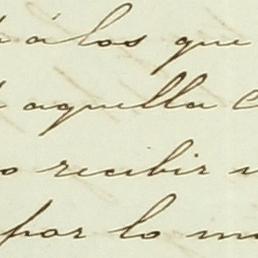 á los que
aquella
recibir
por lo